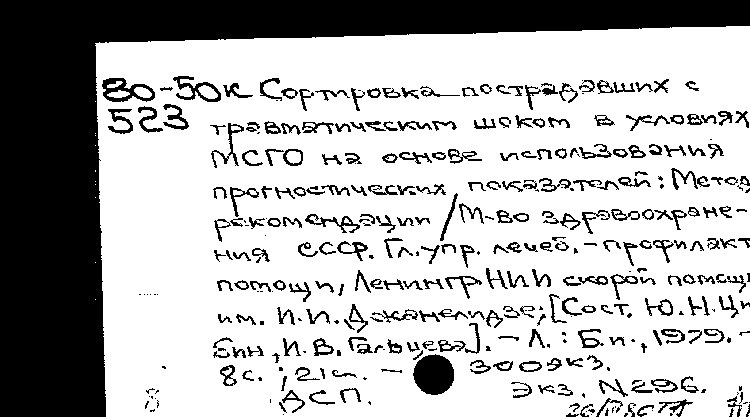 80-50к Сортировка пострадавших с
523 травматическим шоком в условиях
МСГО на основе использования
прогностических показателей: Метод
рекомендации / М-во здравоохране-
ния СССР. Гл. упр. лечеб.-профилакт
помощи, Ленингр НИИ скорой помощи
им. И.И. Джанелидзе; [Сост. Ю.Н. Ци
бин, И.В. Гальцева]. – Л.: Б.и., 1979. –
8 с.; 21 см. – 300 экз.
ДСП. Экз. N296.
8